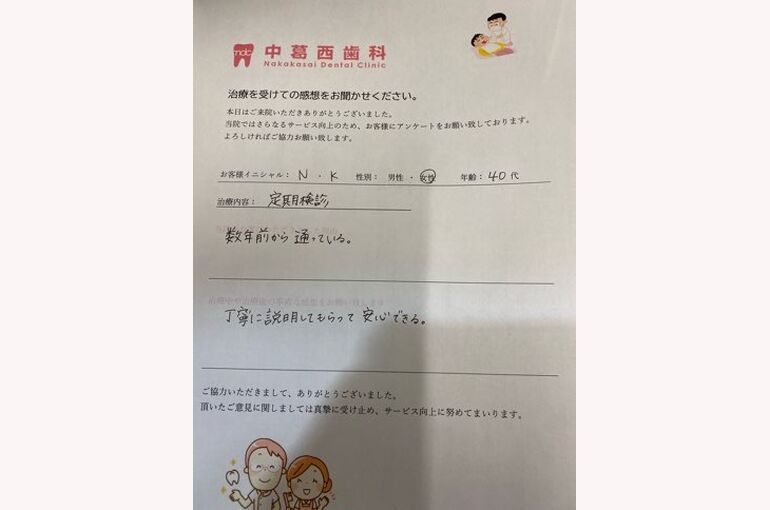 ndc 中葛西歯科
Nakakasai Dental Clinic
治療を受けての感想をお聞かせください。
本日はご来院いただきありがとうございました。
当院ではさらなるサービス向上のため、お客様にアンケートをお願い致しております。
よろしければご協力お願い致します。
お客様イニシャル： N ・ K 性別： 男性 ・ 女性 年齢： 40 代
治療内容： 定期検診
数年前から通っている。
治療中や治療後の率直な感想をお願い致します
丁寧に説明してもらって安心できる。
ご協力いただきまして、ありがとうございました。
頂いたご意見に関しましては真摯に受け止め、サービス向上に努めてまいります。